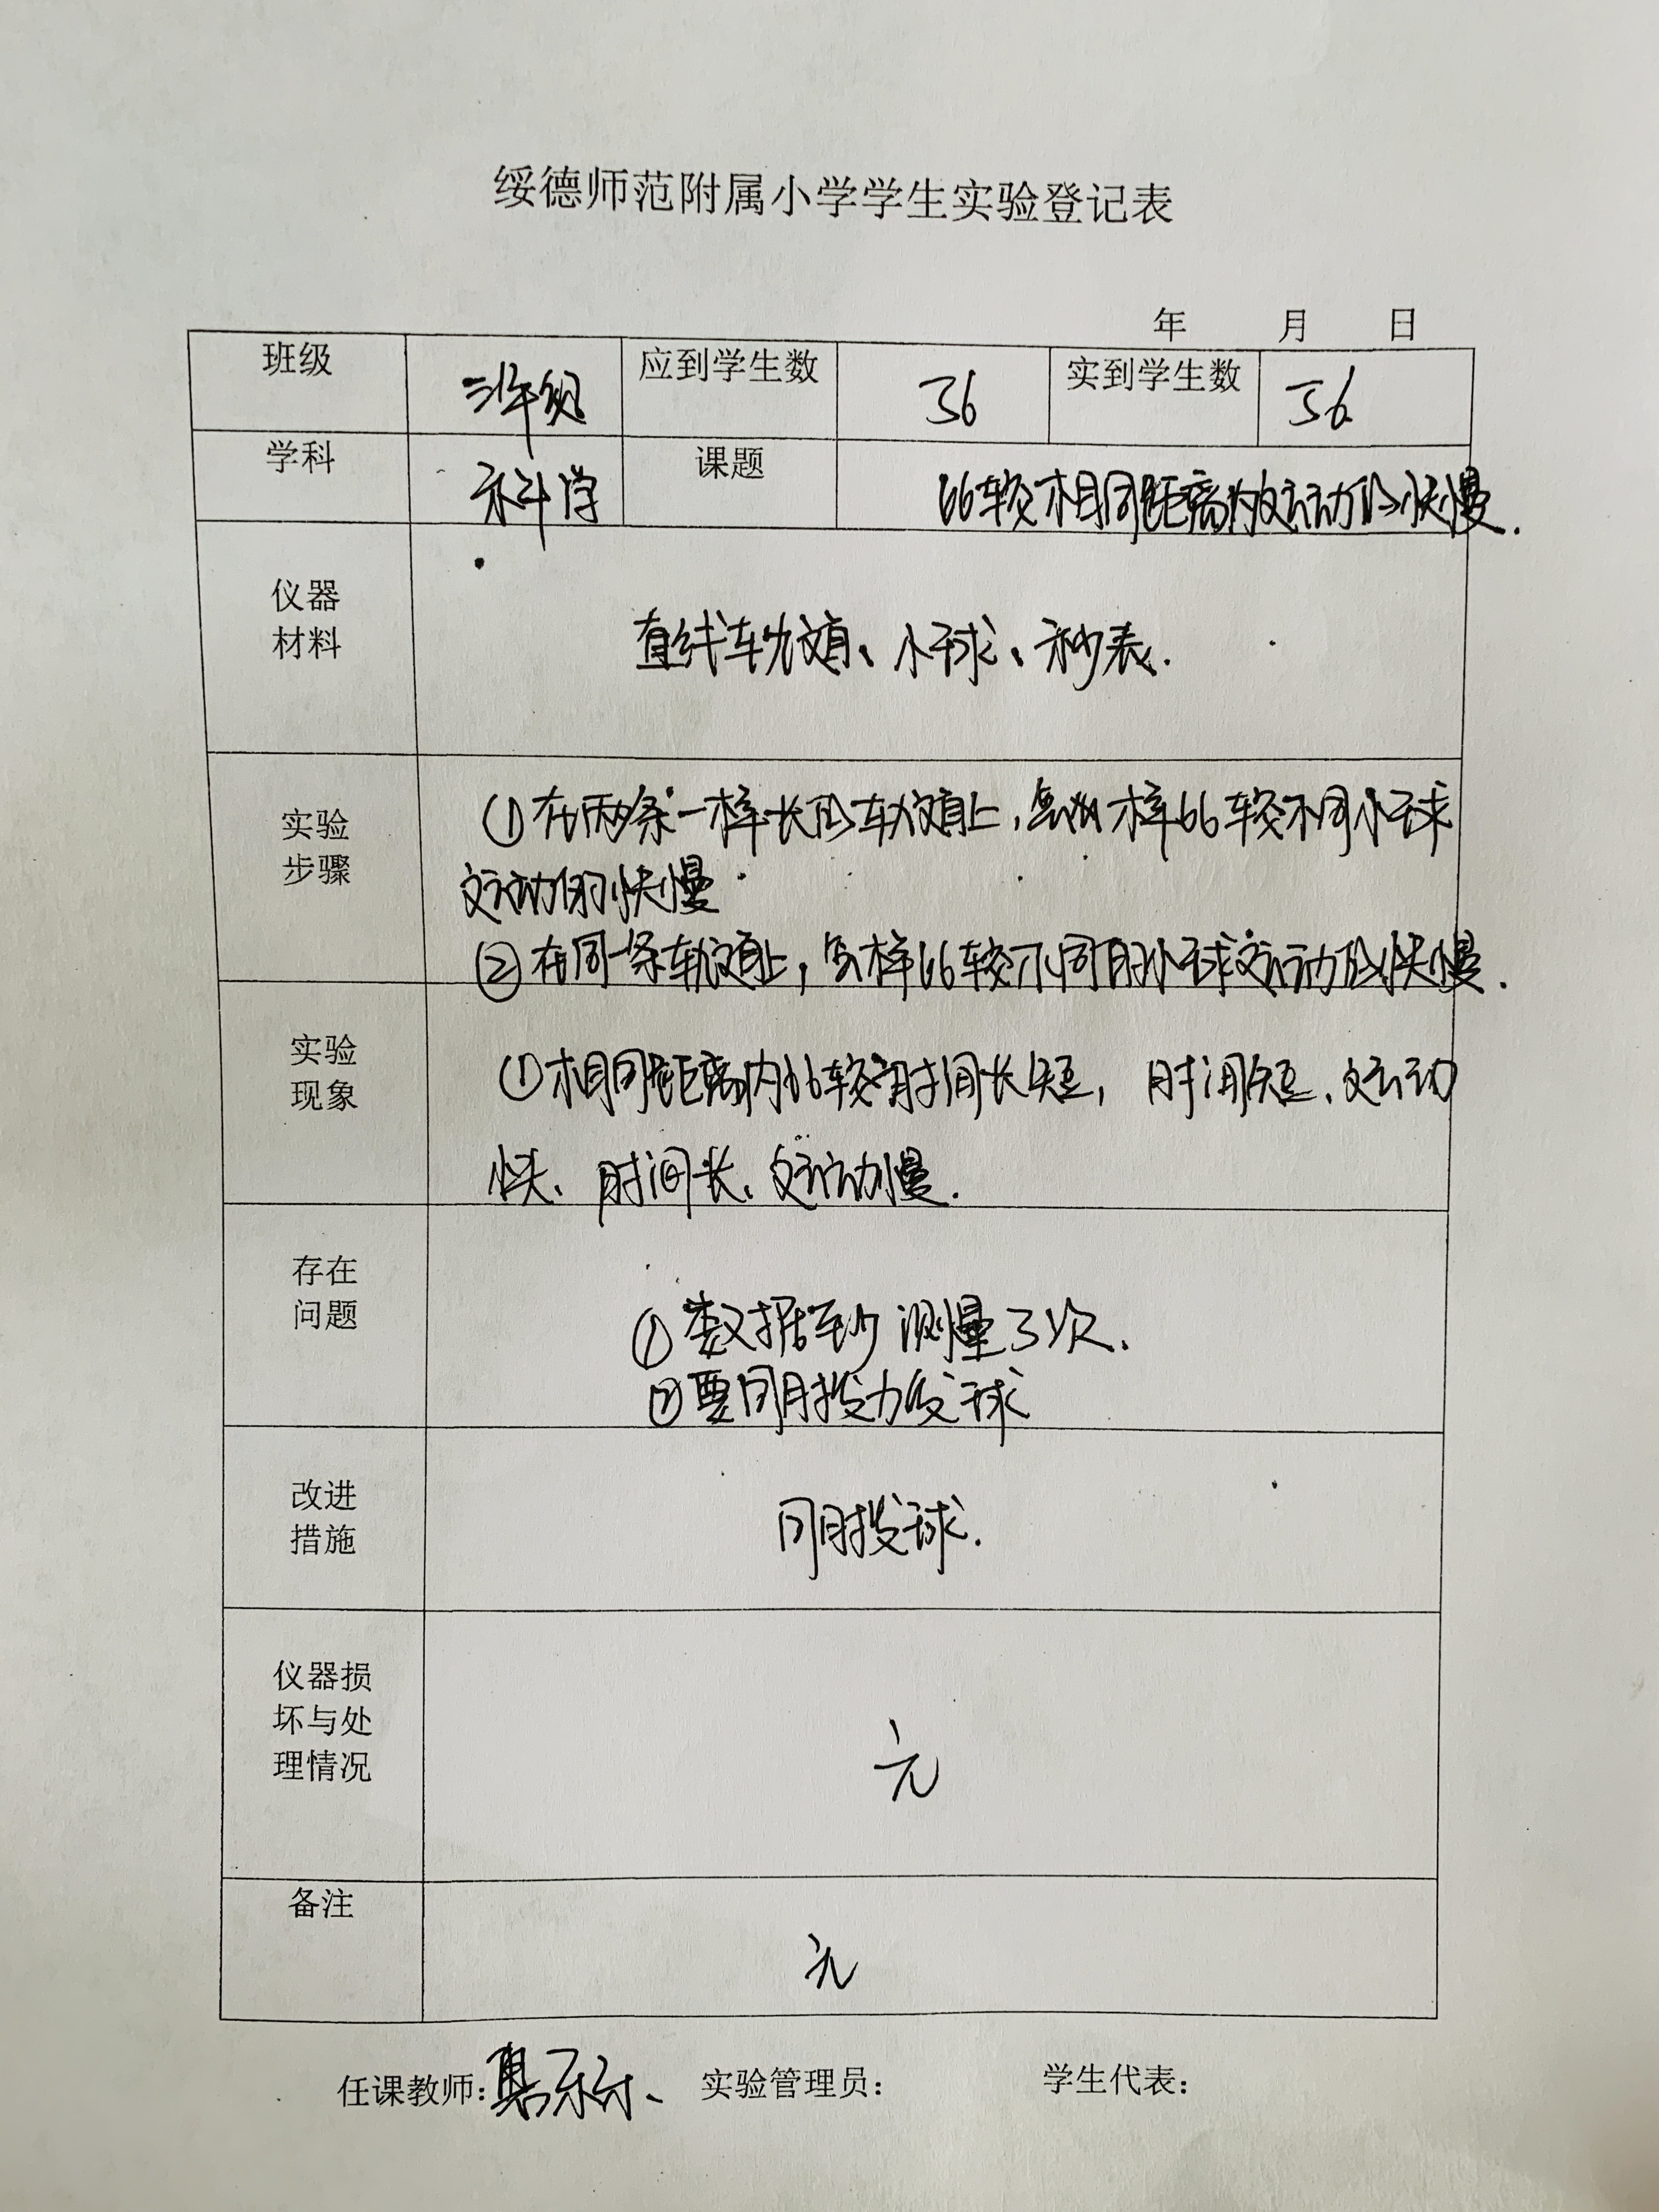 绥德师范附属小学学生实验登记表
年 月 日
班级 三年级 应到学生数 36 实到学生数 36
学科 科学 课题 比较相同距离内运动的快慢.
仪器
材料
直线轨道、小球、秒表.
实验
步骤
①在两条一样长的轨道上,怎样比较不同小球
运动的快慢
②在同一条轨道上,怎样比较不同的小球运动的快慢.
实验
现象
①相同距离内比较时间长短, 时间短、运动
快、时间长、运动慢.
存在
问题
①数据至少测量3次.
②要同时投力发球
改进
措施
同时投球.
仪器损
坏与处
理情况
无
备注
无
任课教师: 实验管理员: 学生代表: